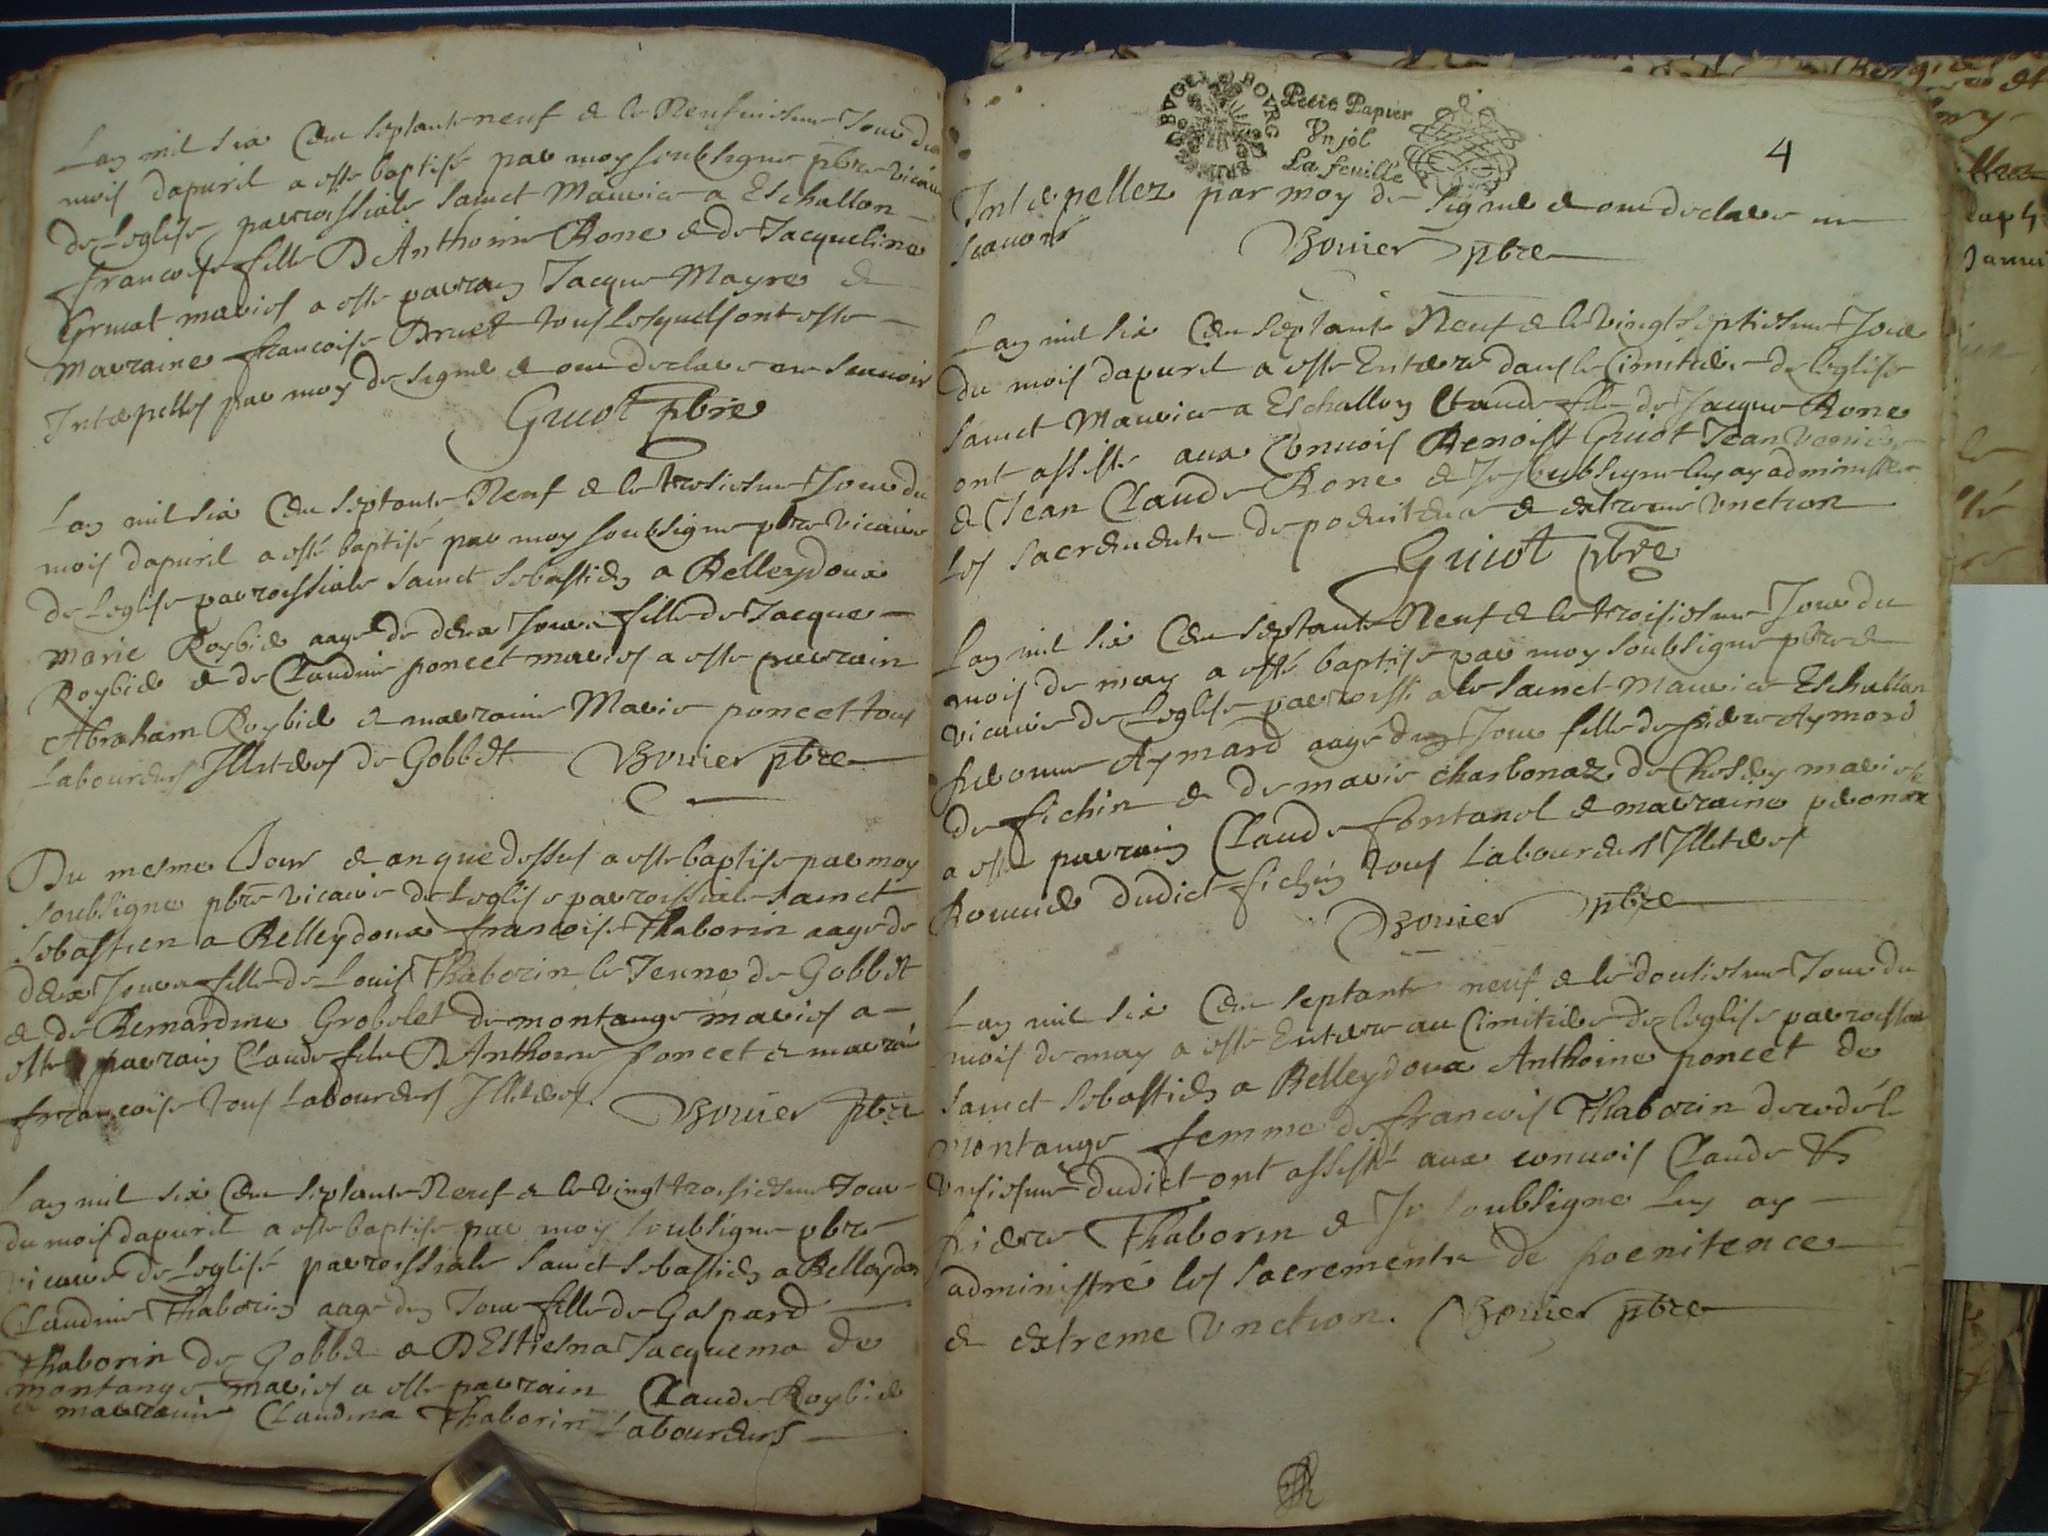 Lan mil six Cens septante neuf & le Neufuiesme Jour du
mois dapuril a esté baptisé par moy soubsigne pbre vicaire
de Leglise parrossiale sainct Maurice a Eschallon
francoise fille D Anthoine Rone & de Jacqueline
Grmat mariés a esté parrain Jacque Mayre &
marraine francoise Druet tous lesquels ont esté
Intepellés par moy de signer & ont declare ne scauoir
Guiot pbre
Lan mil six Cens septante Neuf & le troisiesme Jour du
mois dapuril a esté baptisé par moy soubsigne pbre vicaire
de Leglise parrossiale sainct sebastien a Belleydoux
Marie Roybier aage de deux Jours fille de Jacque
Roybier & de Claudine poncet mariés a esté parrain
Abraham Roybier & marraine Marie poncet tous
Laboureurs Illiteres de Gobbet Bouier pbre
Du mesme Jour & an que dessus a esté baptise par moy
soubsigne pbre vicaire de Leglise parrossiale sainct
sebastien a Belleydoux francoise Thaborin aage de
deux Jours fille de Louis Thaborin le Jeune de Gobbet
& de Bernardine Grobelet de montange mariés a
esté parrain Claude fils D Anthoine poncet & marraine
francoise tous Laboureurs Illiteres. Bouier pbre
Lan mil six Cens septante Neuf & le vingt troisiesme Jour
du mois dapuril a esté baptise par moy soubsigne pbre
vicaire de Leglise parrossiale sainct sebastien a Belleydoux
Claudine Thaborin aage dun Jour fille de Gaspard
thaborin de Gobbet & D Estiesna Jacquema de
montange mariés a esté parrain Claude Roybier
& marraine Claudina Thaborin Laboureurs
BVGEY BOVRG
Petit Papier
Vn sol
La feuille
4
Intepellez par moy de signer & ont declare ne
scauoir Bouier pbre
Lan mil six Cens septante Neuf & le vingt septiesme Jour
du mois dapuril a esté Enterre dans le Cimitiere de leglise
sainct Maurice a Eschallon Claude fils de Jacque Rone
ont assisté aux Conuois Benoist Guiot Jean
& Jean Claude Rone & Je soubsigne luy ay administre
les sacrements de poenitence & extreme vnction
Guiot pbre
Lan mil six Cens septante Neuf & le troisiesme Jour du
mois de may a esté baptise par moy soubsigne pbre &
vicaire de Leglise parrossiale sainct Maurice Eschallon
Aymard aagé dun Jour fille de pierre Aymard
de fichin & de marie charbonaz de mariés
a esté parrain Claude fontanel & marraine
dudict fichin tous Laboureurs Illiteres
Bouier pbre
Lan mil six Cens septante neuf & le dousiesme Jour du
mois de may a esté Enterre au Cimitiere de leglise parrossiale
sainct sebastien a Belleydoux Anthoine poncet de
Montange femme de francois Thaborin decedée
vnsiesme dudict ont assisté aux conuois Claude &
pierre Thaborin & Je soubsigne luy ay
administré les sacrements de poenitence
& extreme vnction. Bouier pbre